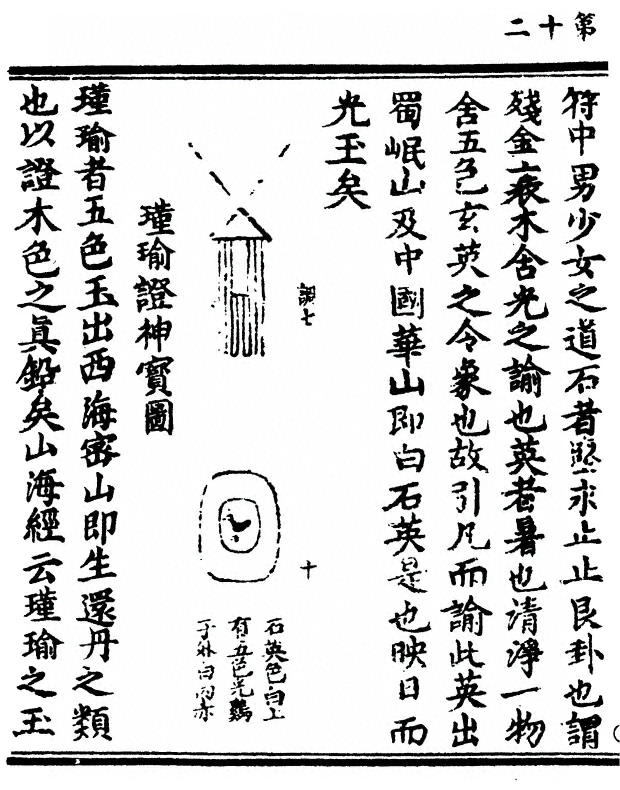 第十二
符中男少女之道石者堅求止止艮卦也謂
殘金一衰水含光之諭也英者暑也清淨一物
含五色玄英之令象也故引凡而諭此英出
蜀岷山及中國華山即白石英是也映日而
光玉矣
調七
十
石英色白上
有五色光鷄
子外白內赤
瑾瑜證神寳圖
瑾瑜者五色玉出西海密山即生還丹之類
也以證木色之眞鉛矣山海經云瑾瑜之玉